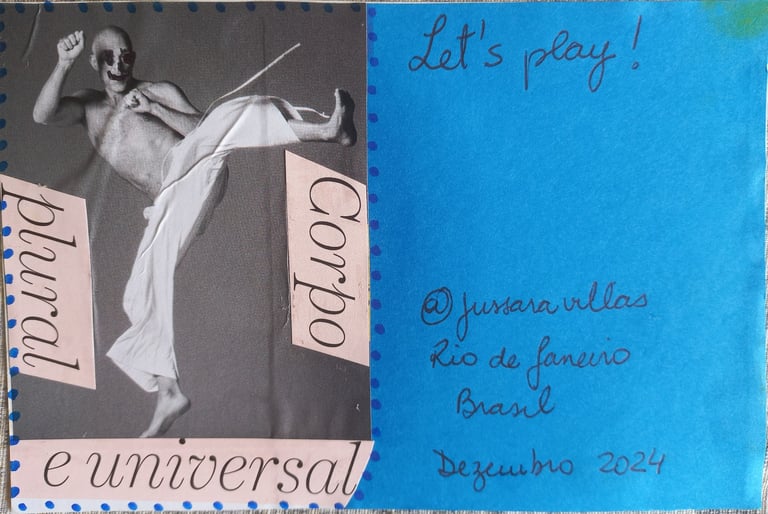 Corpo
plural
e universal
Let's play!
@jussaravillas
Rio de Janeiro
Brasil
Dezembro 2024